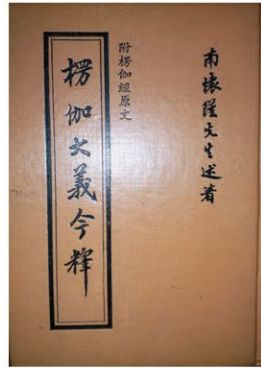 南懷瑾先生述著
附楞伽經原文
楞伽大義今釋